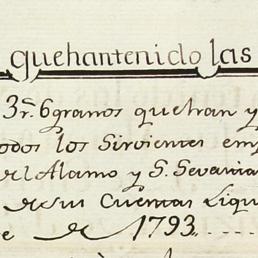 quehantenido las
3r. 6granos quehan y
odos los Sirvientes em
el Alamo y S. Sevania
de sus Cuentas Liqu
e de 1793